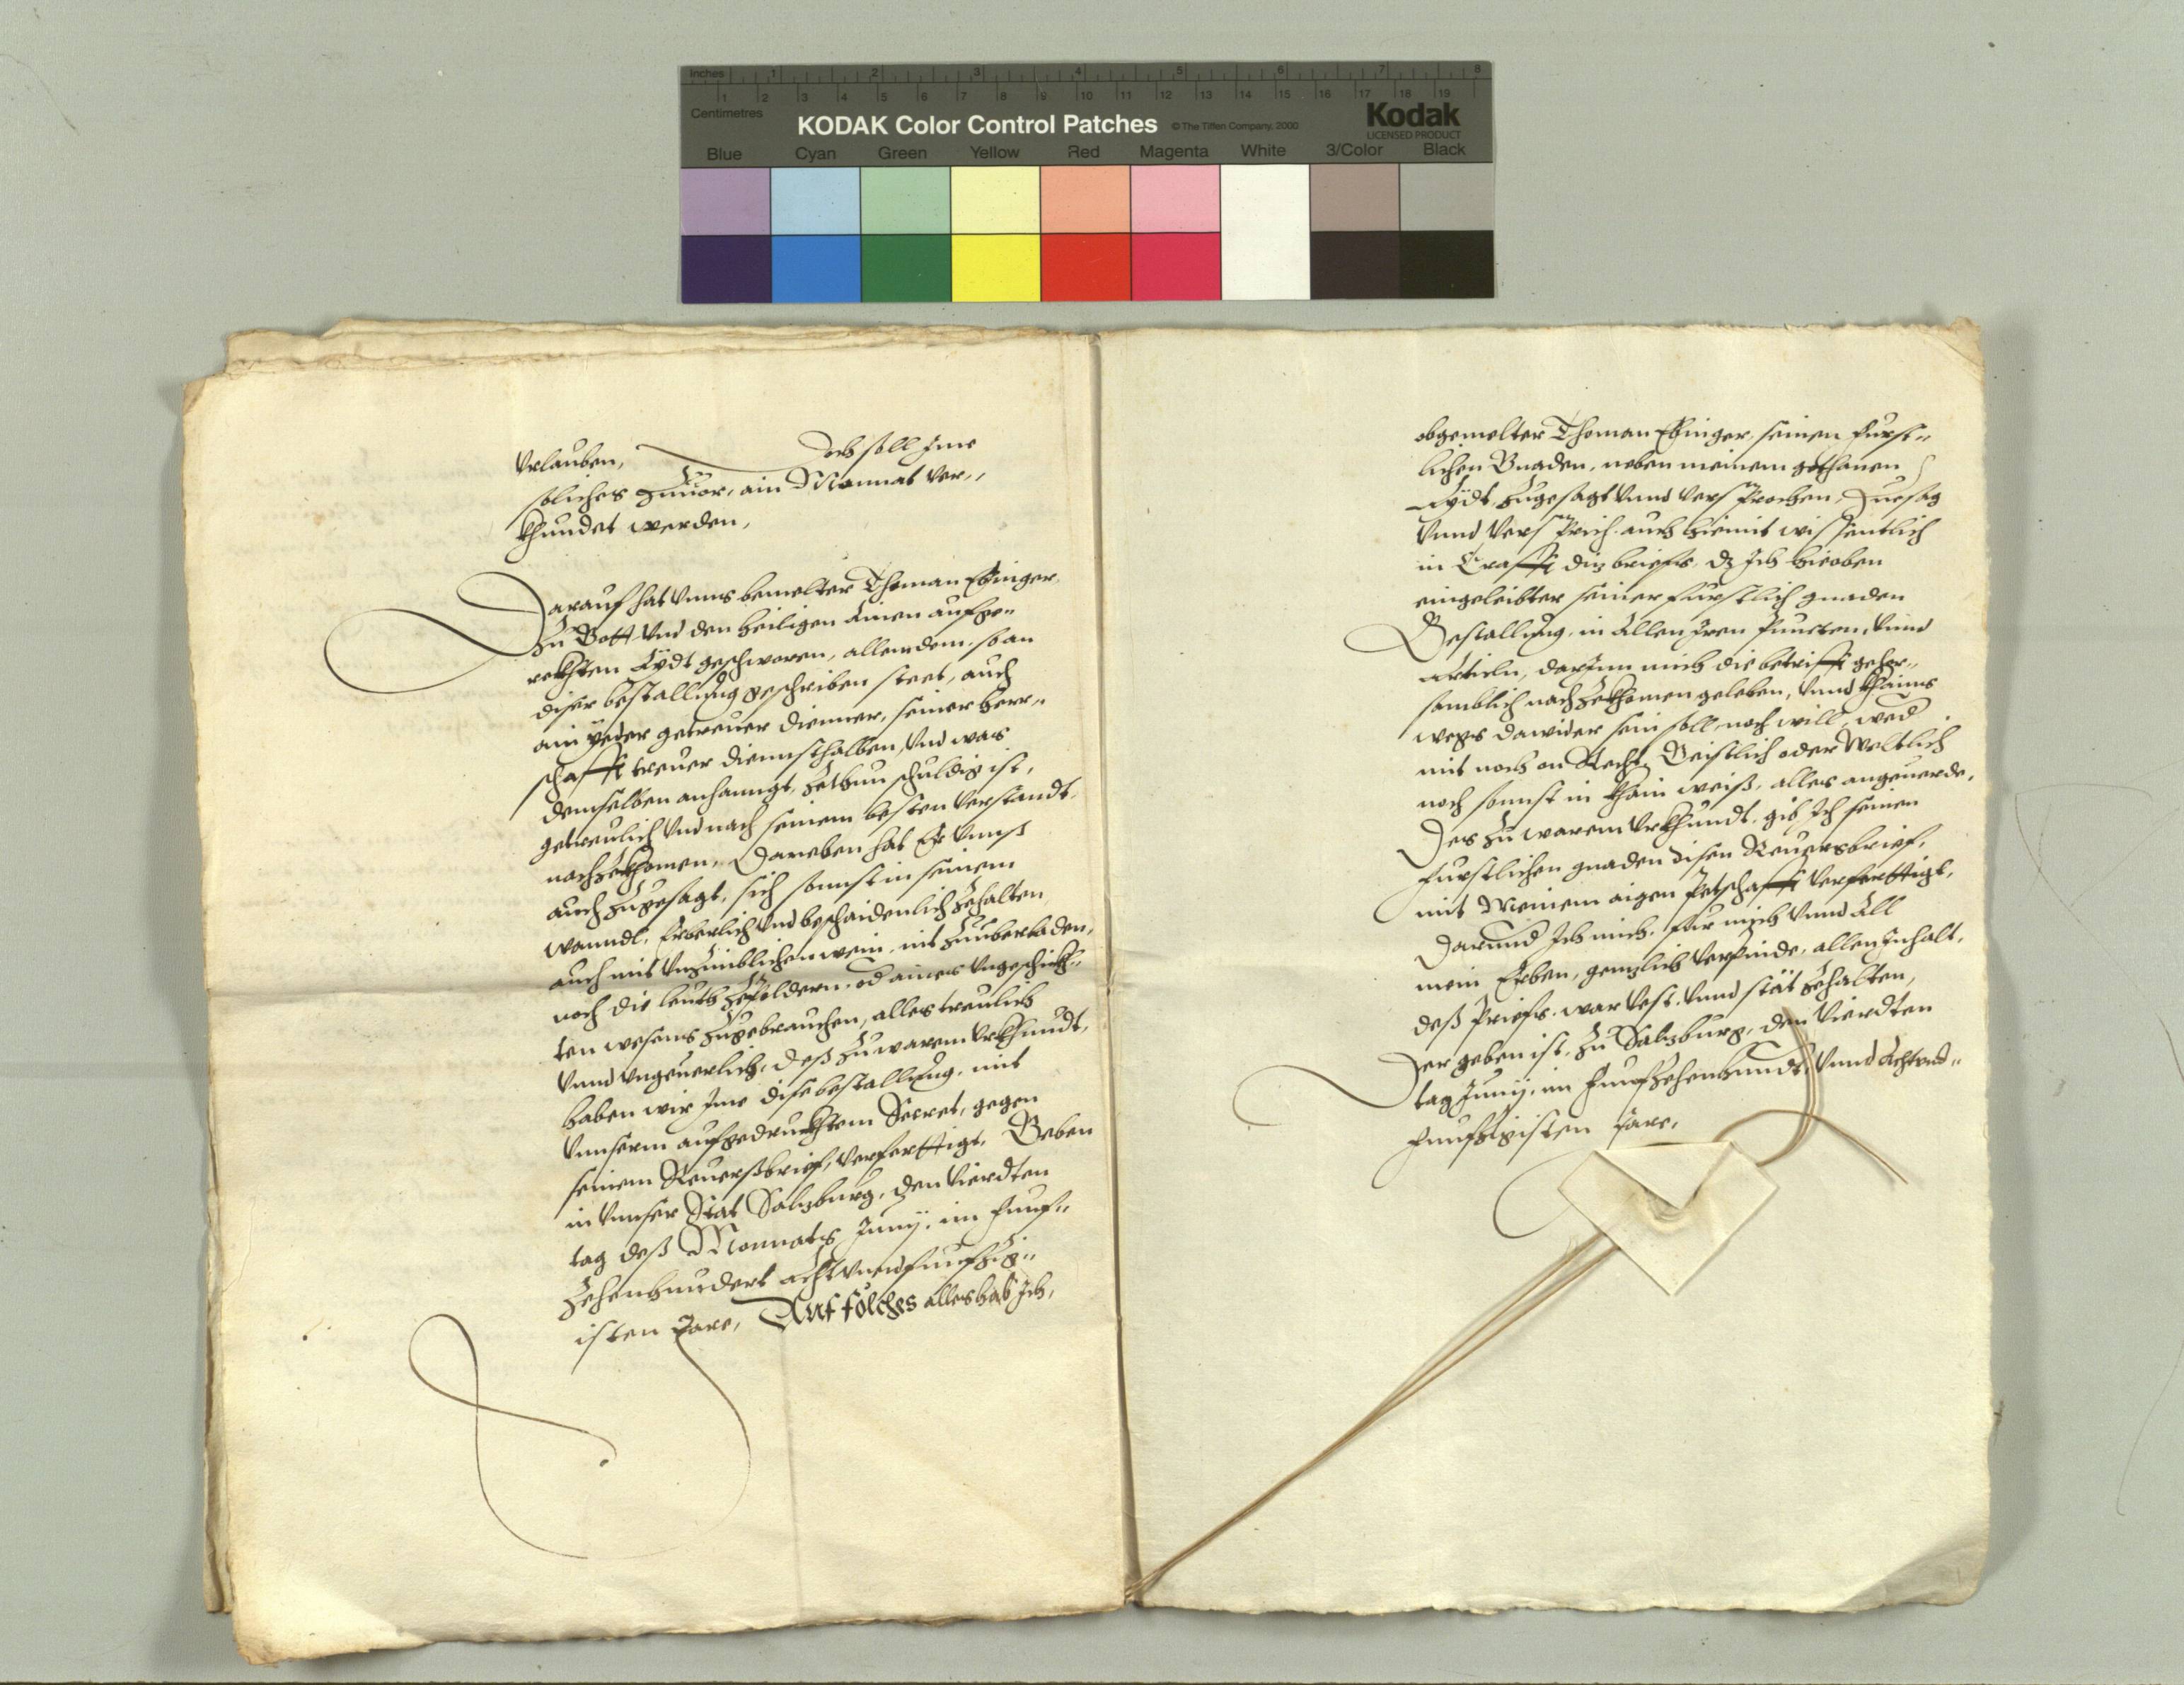 Inches 1 2 3 4 5 6 7 8
1 2 3 4 5 6 7 8 9 10 11 12 13 14 15 16 17 18 19
Centimetres
KODAK Color Control Patches © The Tiffen Company, 2000 Kodak
LICENSED PRODUCT
Blue Cyan Green Yellow Red Magenta White 3/Color Black
Vrlauben, doch soll Jme
solliches Zuuor, ain Monnat ver,,
khundet werden,
Darauf hat vnns bemelter Thoman Ebinger
Zu Gott vnd den heiligen ainen aufge,,
rekhten Aydt geschworen, allem dem, so an
diser bestallung geschriben steet, auch
ain yeder getreuer dienner, seiner herr,,
schafft treuer diennsthalben, vnd was
demselben anhanngt, Zethun schuldig ist,
getreulich vnd nach seinem besten verstandt
nachzekhomen, Daneben hat Er vnns
auch Zugesagt, sich sonnst in seinem
wanndl, Erberlich vnd beschaidenlich Zehalten
auch mit vnzimblichen wein, nit Zuüberladen,
noch die leuth Zepoldern, od aines vngeschickh,,
ten wesens Zugebrauchen, alles treulich
vnnd vngeuerlich, deß Zu warem vrkhundt,
haben wir Jme dise bestallung, mit
vnnserm aufgedruckhtem Secret, gegen
seinem Reuerßbrief, verferttigt, Geben
in vnnser Stat Salzburg, den vierdten
tag deß Monnats Junij, im Funf,,
Zehenhundert achtvnndfunfzig,,
isten Jare, Auf solches alles hab Jch,
obgemelter Thoman Ebinger, seinen Furst,,
lichen Gnaden, neben meinem gethanen
Aydt, Zugesagt vnnd versprochen, Zuesag
vnnd versprich, auch hiemit wissentlich
in Crafft diz briefs, dz Jch hieoben
eingeleibter seiner furstlich gnaden
Bestallung, in allen Jren Puncten, vnnd
articln, darJnn mich die betrifft gehor,,
samblich nachzekhomen geleben, vnnd khains
wegs dawider sein soll noch will, wed
mit noch on Recht, Geistlich oder Weltlich
noch sonnst in khain weiß, alles angeuerde,
Des Zu warem vrkhundt, gib Jch seinen
Furstlichen gnaden disen Reuersbrief,
mit Meinem aigen Petschafft verferttigt,
Darundt Jch mich, fur mich vnnd All
mein Erben, genzlich verpinde, allen Jnhalt,
deß Priefs, war vest, vnnd stät Zehalten,
Der geben ist, Zu Salzburg, den vierdten
tag Junij, im Funfzehenhundt, vnnd Achtvnd,,
funfzigisten Jare,